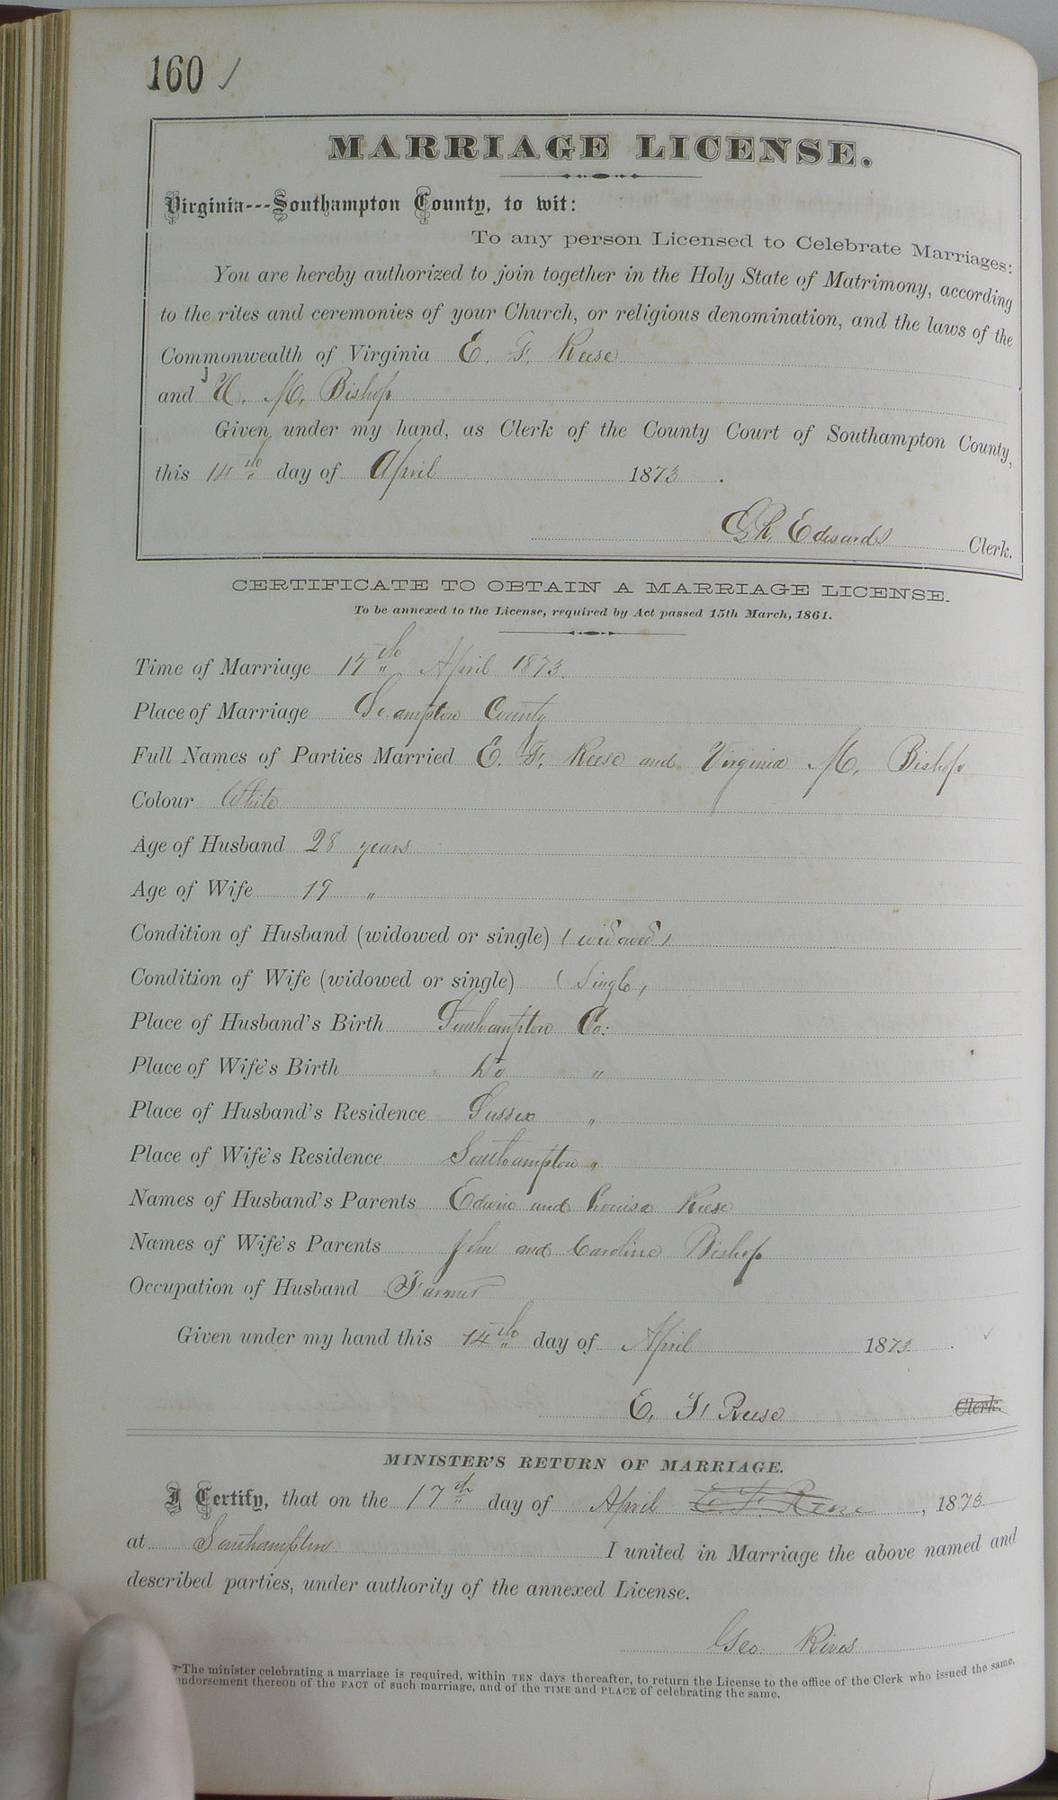 160
MARRIAGE LICENSE.
Virginia---Southampton County, to wit:
To any person Licensed to Celebrate Marriages:
You are hereby authorized to join together in the Holy State of Matrimony, according
to the rites and ceremonies of your Church, or religious denomination, and the laws of the
Commonwealth of Virginia E. F. Reese
and M. Bishop
Given under my hand, as Clerk of the County Court of Southampton County,
this 14th day of April 1873.
Edwards Clerk.
CERTIFICATE TO OBTAIN A MARRIAGE LICENSE.
To be annexed to the License, required by Act passed 15th March, 1861.
Time of Marriage 17th April 1873.
Place of Marriage So.ampton County
Full Names of Parties Married E. F. Reese and Virginia M. Bishop
Colour White
Age of Husband 28 years
Age of Wife 19 "
Condition of Husband (widowed or single) (widowed)
Condition of Wife (widowed or single) (Single)
Place of Husband's Birth Southampton Co:
Place of Wife's Birth Do "
Place of Husband's Residence Sussex "
Place of Wife's Residence Southampton "
Names of Husband's Parents Edwin and Louisa Reese
Names of Wife's Parents John and Caroline Bishop
Occupation of Husband Farmer
Given under my hand this 14th day of April 1873.
E. F. Reese Clerk.
MINISTER'S RETURN OF MARRIAGE.
I Certify, that on the 17th day of April E. F. Reese, 1873
at Southampton I united in Marriage the above named and
described parties, under authority of the annexed License.
Geo. Rives
The minister celebrating a marriage is required, within TEN days thereafter, to return the License to the office of the Clerk who issued the same,
endorsement thereon of the FACT of such marriage, and of the TIME and PLACE of celebrating the same.